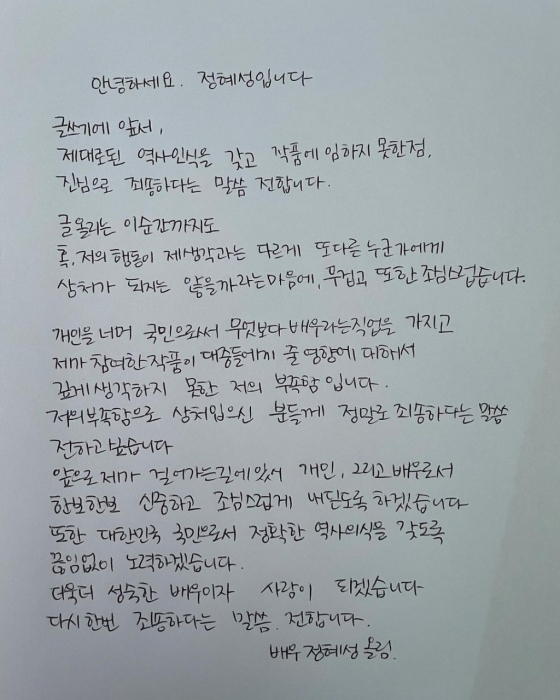 안녕하세요. 정혜성입니다
글쓰기에 앞서,
제대로된 역사인식을 갖고 작품에 임하지 못한점,
진심으로 죄송하다는 말씀 전합니다.
글 올리는 이순간까지도
혹, 저의 행동이 제생각과는 다르게 또다른 누군가에게
상처가 되지는 않을까라는마음에, 무겁고 또한 조심스럽습니다.
개인을 너머 국민으로써 무엇보다 배우라는직업을 가지고
제가 참여한 작품이 대중들에게 줄 영향에 대해서
깊게 생각하지 못한 저의 부족함 입니다.
저의부족함으로 상처입으신 분들께 정말로 죄송하다는 말씀
전하고 싶습니다
앞으로 제가 걸어가는길에 있어 개인, 그리고 배우로서
한보한보 신중하고 조심스럽게 내딛도록 하겠습니다
또한 대한민국 국민으로서 정확한 역사의식을 갖도록
끊임없이 노력하겠습니다.
더욱더 성숙한 배우이자 사람이 되겠습니다
다시 한번 죄송하다는 말씀. 전합니다.
배우 정혜성 올림.